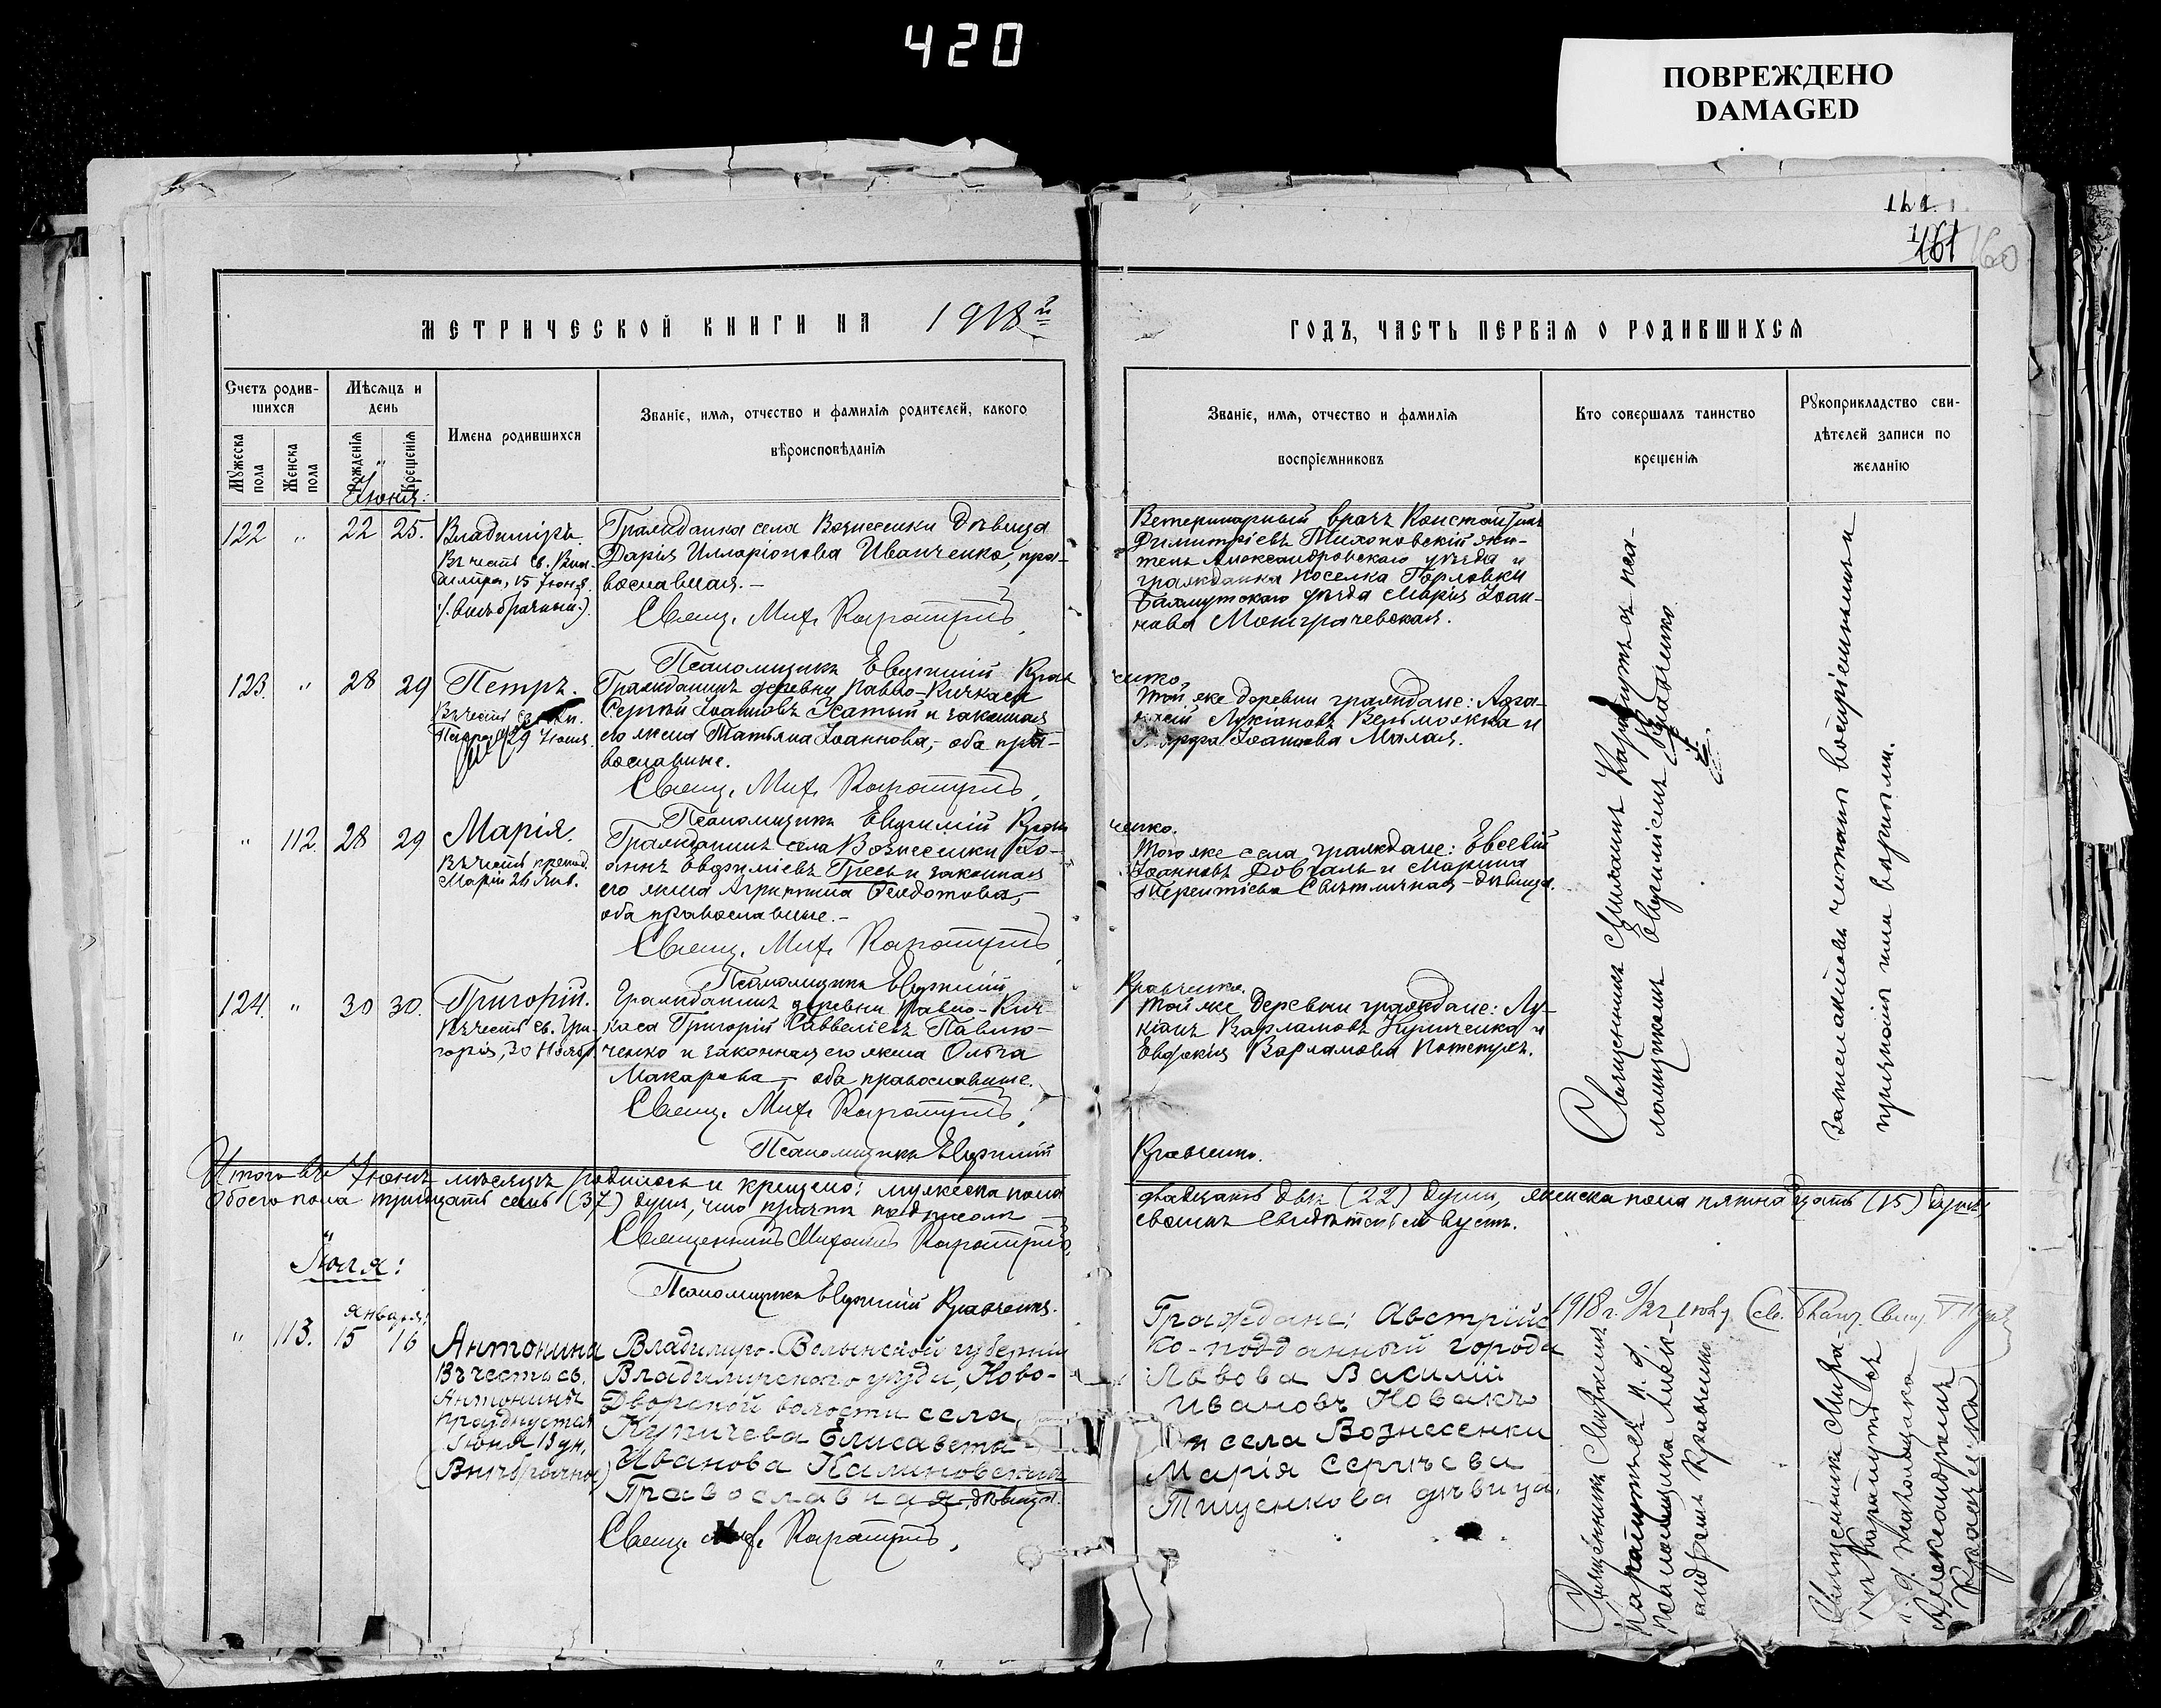 420
ПОВРЕЖДЕНО
DAMAGED
161 160
МЕТРИЧЕСКОЙ КНИГИ НА 1918 й
ГОДЪ, ЧАСТЬ ПЕРВАЯ О РОДИВШИХСЯ
Счетъ родив-
шихся
Мужеска
пола
Женска
пола
Мѣсяцъ и
день
Рожденія
Крещенія
Имена родившихся
Званіе, имя, отчество и фамилія родителей, какого
вѣроисповѣданія
Званіе, имя, отчество и фамилія
воспріемниковъ
Кто совершалъ таинство
крещенія
Рукоприкладство сви-
дѣтелей записи по
желанію
Іюня:
122 " 22 25.
Владиміръ.
Въ честь св. Вла-
диміра, 15 Іюля.
(:внѣбрачный:)
Гражданка села Вознесенки дѣвица
Дарія Илларіонова Иванченко, пра-
вославная.-
Свящ. Мих. Карапутъ
Псаломщикъ Евфимій Крав
ченко.
Ветеринарный врачъ Константинъ
Димитріевъ Тихоновскій жи-
тель Александровскаго уѣзда и
гражданка поселка Горловки
Бахмутскаго уѣзда Марія Іоан-
нова
123. " 28 29
Петръ.
Въ честь св. Ап.
Петра, 29 Іюня.
Гражданинъ деревни Павло-Кичкаса
Сергій Іоанновъ Усатый и законная
его жена Татьяна Іоаннова,- оба пра-
вославные.
Свящ. Мих. Карапутъ
Псаломщикъ Евфимій Крав
ченко.
Той же деревни граждане:
Лукіановъ Вельможка и
Іоаннова Малая.
" 112. 28 29
Марія.
Въ честь препод.
Маріи 26 Янв.
Гражданинъ села Вознесенки Іо-
аннъ Евфиміевъ Гресь и законная
его жена Агриппина Феодотова,-
оба православные.-
Свящ. Мих. Карапутъ
Псаломщикъ Евфимій
Кравченко.
Того же села граждане: Евсевій
Іоанновъ Довгаль и Марина
Терентіева Свѣтличная - дѣвица.
124. " 30 30.
Григорій.
Въ честь св. Гри-
горія, 30 Ноября
Гражданинъ деревни Павло-Кич-
каса Григорій Савеліевъ Павлю-
ченко и законная его жена Ольга
Макарова,- оба православные.
Свящ. Мих. Карапутъ
Псаломщикъ Евфимій
Кравченко.
Той же деревни граждане: Лу-
кіанъ Варламовъ и
Евдокія Варламова
Священникъ Михаилъ Карапутъ съ пса-
ломщикомъ Евфиміемъ Кравченко
Запись актовъ читана воспріемниками
причтомъ
Итого въ Іюнѣ мѣсяцѣ родилось и крещено: мужеска пола
двадцать двѣ (22) души, женска пола пятнадцать (15) душъ,
обоего пола тридцать семь (37) душъ, что причтъ подписомъ
своимъ свидѣтельствуетъ.
Священникъ Михаилъ Карапутъ
Псаломщикъ Евфимій Кравченко.
Іюля:
января:
" 113. 15 16
Антонина
Въ честь св.
Антонины
празднуемая
Іюня 13 дн.
(Внѣбрачная)
Владиміро-Волынской губерніи
Владимірскаго уѣзда, Ново-
Дворской волости села
Купичева Елисавета
Иванова Калиновская
Православная, дѣвица.
Свящ. Мих. Карапутъ.
Граждане: Австрійс
ко-подданный города
Львова Василій
Ивановъ Новакъ
и села Вознесенки
Марія Сергѣева
Тищенкова дѣвица.
1918 г.
Священникъ Михаилъ
Карапутъ и. д.
псаломщика Алек-
андръ Кравченко
Священникъ Михаилъ
Карапутъ съ
и. д. псаломщика
Александромъ
Кравченко